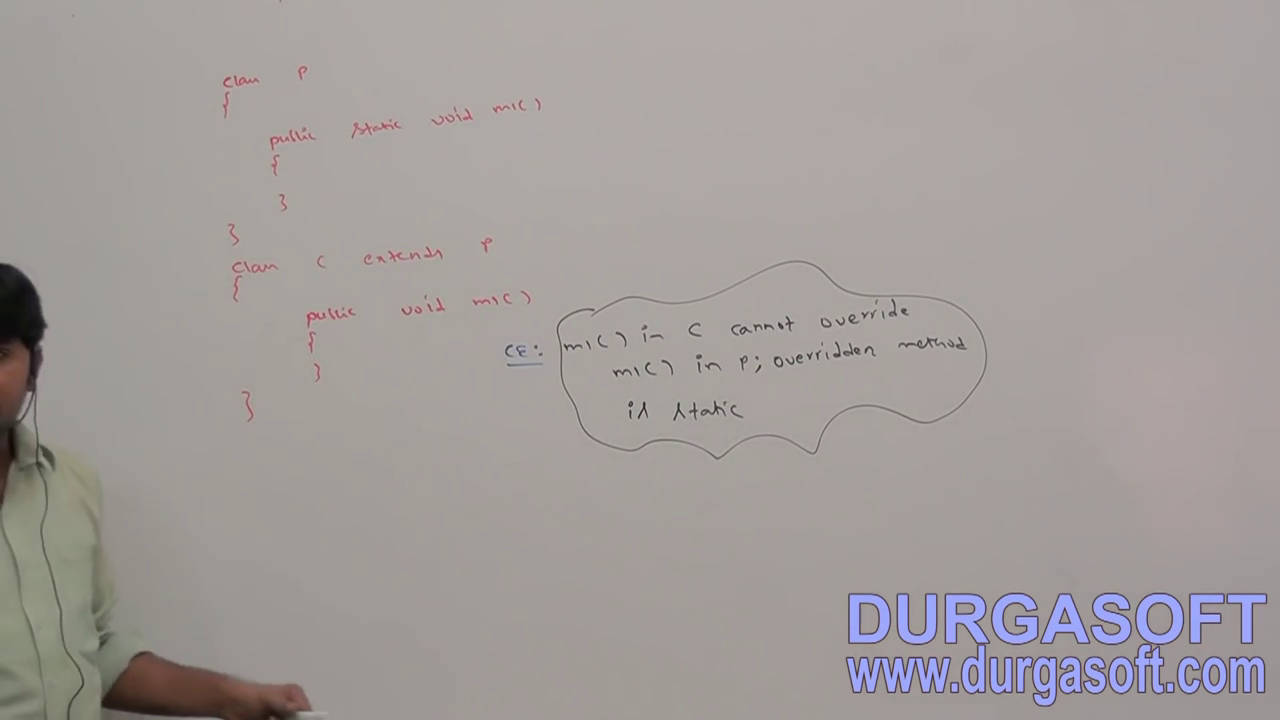 class P
{
public static void m1()
{
}
}
class C extends P
{
public void m1()
{
}
}
CE: m1() in C cannot override
m1() in P; overridden method
is static
DURGASOFT
www.durgasoft.com